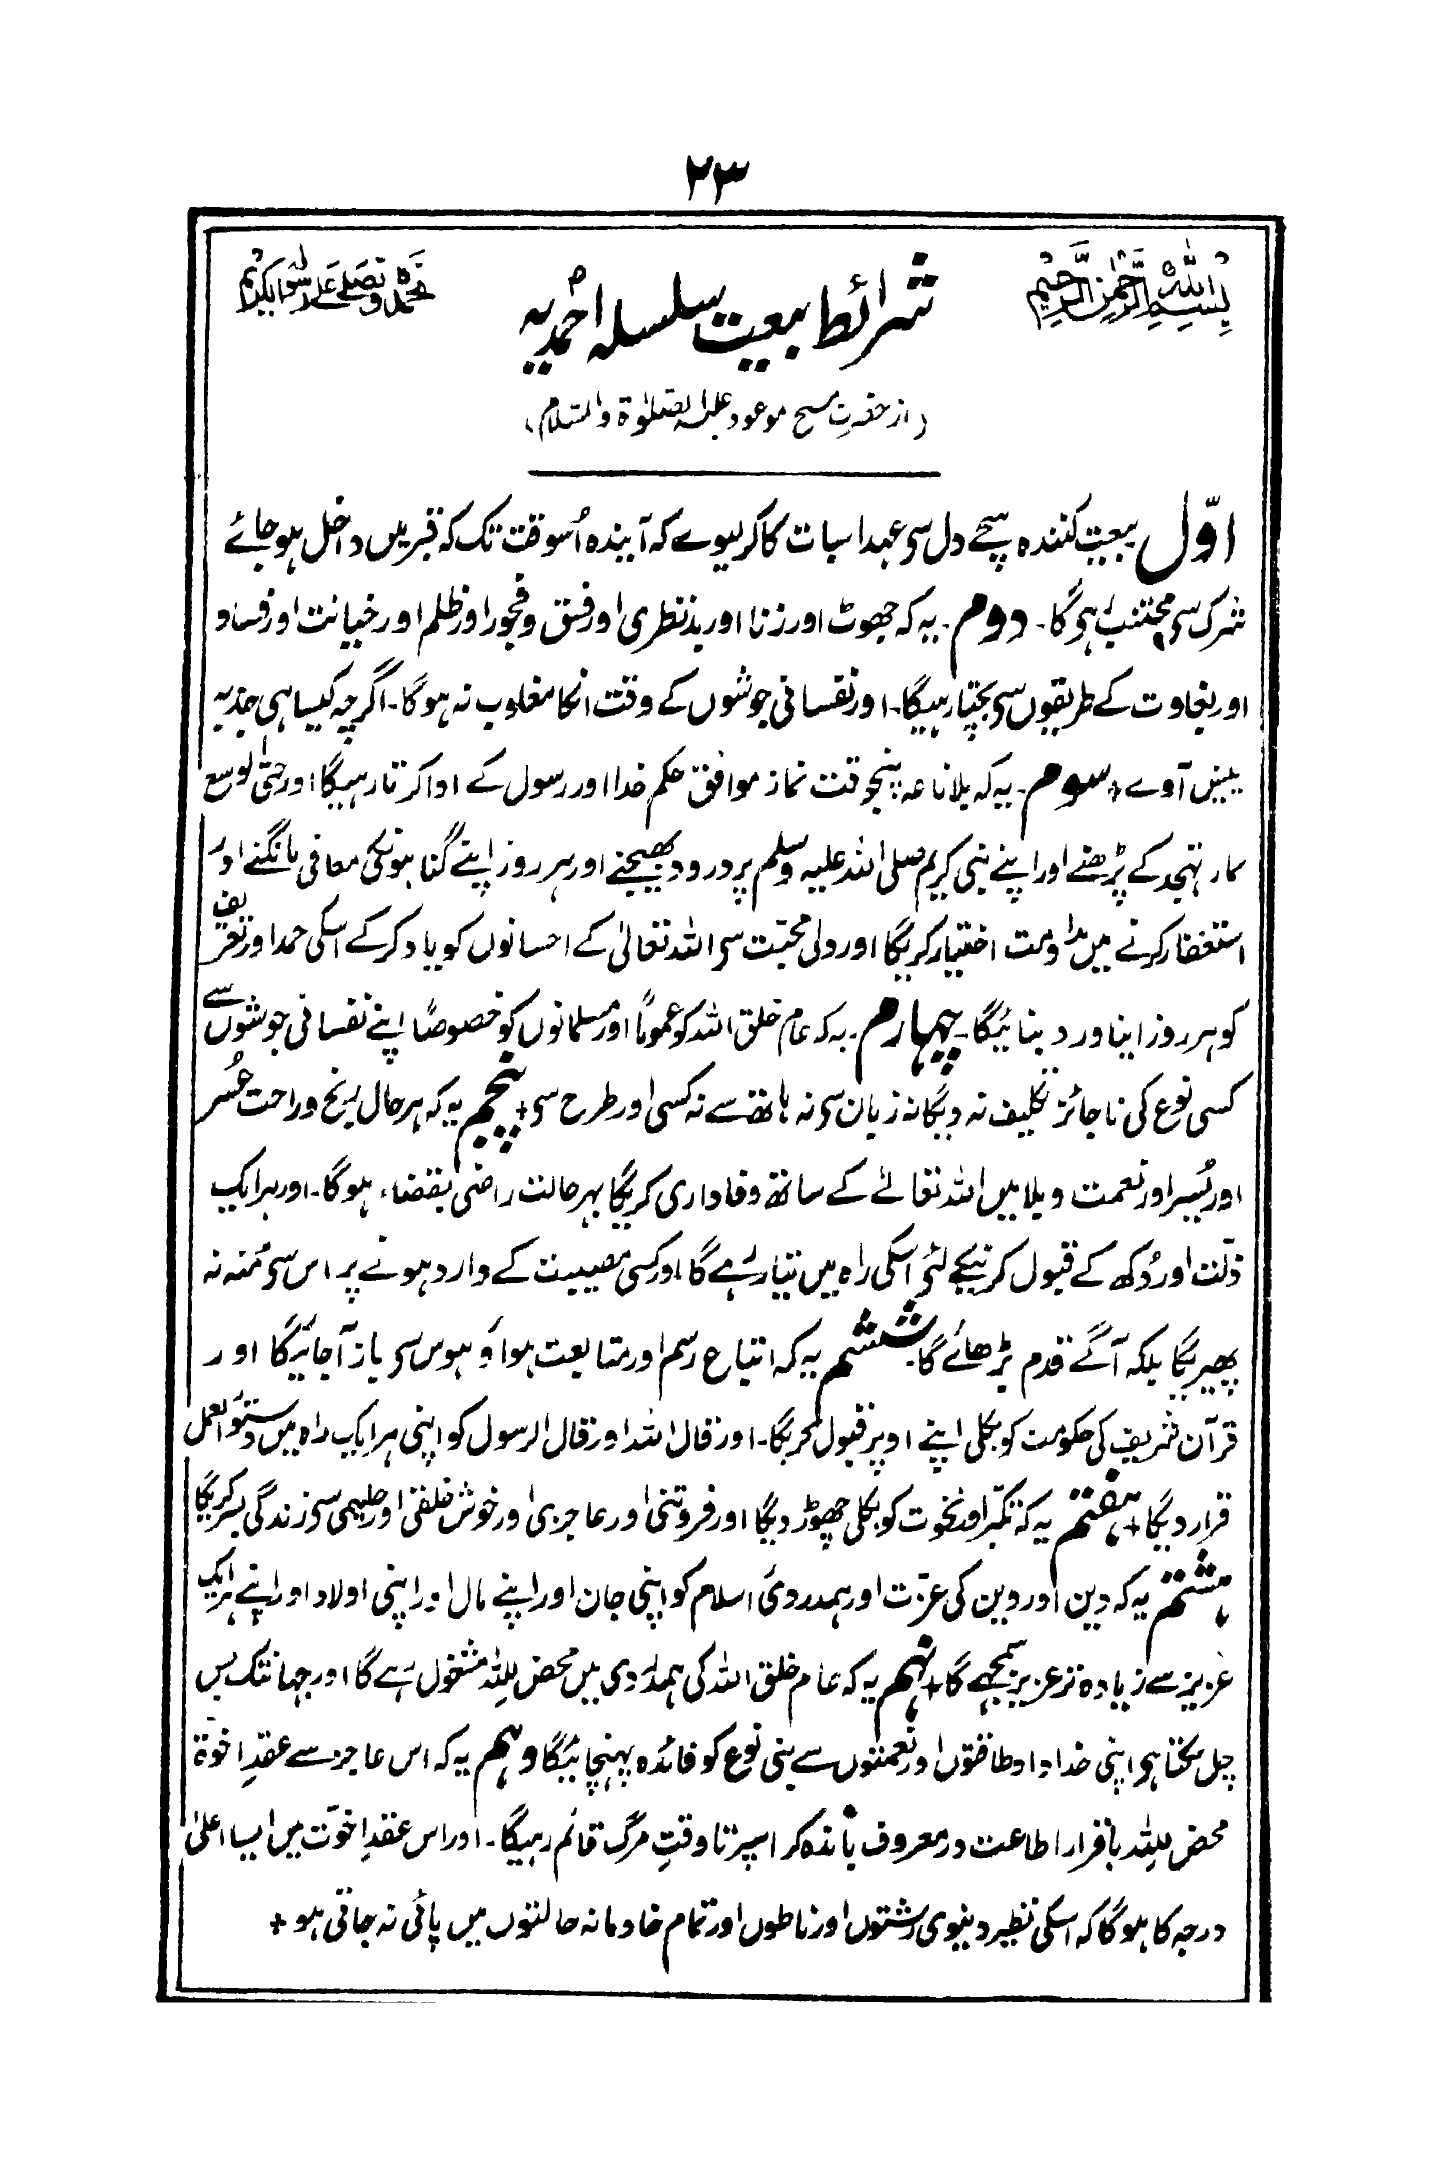 ۲۳
بِسْمِ اللّٰهِ الرَّحْمٰنِ الرَّحِيْمِ
نَحْمَدُهٗ وَنُصَلِّیْ عَلٰی رَسُوْلِهِ الْكَرِيْمِ
شرائط بیعت سلسلہ احمدیہ
(از حضرت مسیح موعود علیہ الصلوٰۃ والسلام)
اوّل بیعت کنندہ سچے دل سے عہد اسبات کا کر لیوے کہ آیندہ اُسوقت تک کہ قبر میں داخل ہو جائے
شرک سے مجتنب رہیگا۔ دوم۔ یہ کہ جھوٹ اور زنا اور بدنظری اور فسق و فجور اور ظلم اور خیانت اور فساد
اور بغاوت کے طریقوں سے بچتا رہیگا۔ اور نفسانی جوشوں کے وقت انکا مغلوب نہ ہوگا۔ اگرچہ کیسا ہی جذبہ
پیش آوے + سوم۔ یہ کہ بلا ناغہ پنجوقت نماز موافق حکم خدا اور رسول کے ادا کرتا رہیگا اور حتّٰی الوسع
نماز تہجد کے پڑھنے اور اپنے نبی کریم صلی اللہ علیہ وسلم پر درود بھیجنے اور ہر روز اپنے گناہونکی معافی مانگنے اور
استغفار کرنے میں مداومت اختیار کریگا اور دلی محبّت سے اللہ تعالیٰ کے احسانوں کو یاد کر کے اسکی حمد اور تعریف
کو ہر روز اپنا ورد بنائیگا۔ چہارم۔ یہ کہ عام خلق اللہ کو عموماً اور مسلمانوں کو خصوصاً اپنے نفسانی جوشوں سے
کسی نوع کی ناجائز تکلیف نہ دیگا نہ زبان سے نہ ہاتھ سے نہ کسی اور طرح سے + پنجم یہ کہ ہر حال رنج و راحت عُسر
اور یُسر اور نعمت و بلا میں اللہ تعالےٰ کے ساتھ وفاداری کریگا بہر حالت راضی بقضاء ہوگا۔ اور ہر ایک
ذلّت اور دُکھ کے قبول کرنیکے لئے اسکی راہ میں تیار رہے گا اور کسی مصیبت کے وارد ہونے پر اس سے مُنہ نہ
پھیریگا بلکہ آگے قدم بڑھائے گا۔ ششم یہ کہ اتباع رسم اور متابعت ہوا و ہوس سے باز آجائیگا اور
قرآن شریف کی حکومت کو بکلی اپنے اوپر قبول کریگا۔ اور قال اللہ اور قال الرسول کو اپنی ہر ایک راہ میں دستور العمل
قرار دیگا + ہفتم یہ کہ تکبّر اور نخوت کو بکلی چھوڑ دیگا اور فروتنی اور عاجزی اور خوش خلقی اور حلیمی سے زندگی بسر کریگا
ہشتم یہ کہ دین اور دین کی عزّت اور ہمدردیٔ اسلام کو اپنی جان اور اپنے مال اور اپنی اولاد اور اپنے ہر ایک
عزیز سے زیادہ تر عزیز سمجھے گا + نہم یہ کہ عام خلق اللہ کی ہمدردی میں محض للہ مشغول رہے گا اور جہانتک بس
چل سکتا ہے اپنی خداداد طاقتوں اور نعمتوں سے بنی نوع کو فائدہ پہنچائیگا دہم یہ کہ اس عاجز سے عقدِ اخوۃ
محض للہ باقرار اطاعت در معروف باندھ کر اسپر تا وقت مرگ قائم رہیگا۔ اور اس عقدِ اخوّت میں ایسا اعلیٰ
درجہ کا ہوگا کہ اسکی نظیر دنیوی رشتوں اور ناطوں اور تمام خادمانہ حالتوں میں پائی نہ جاتی ہو +